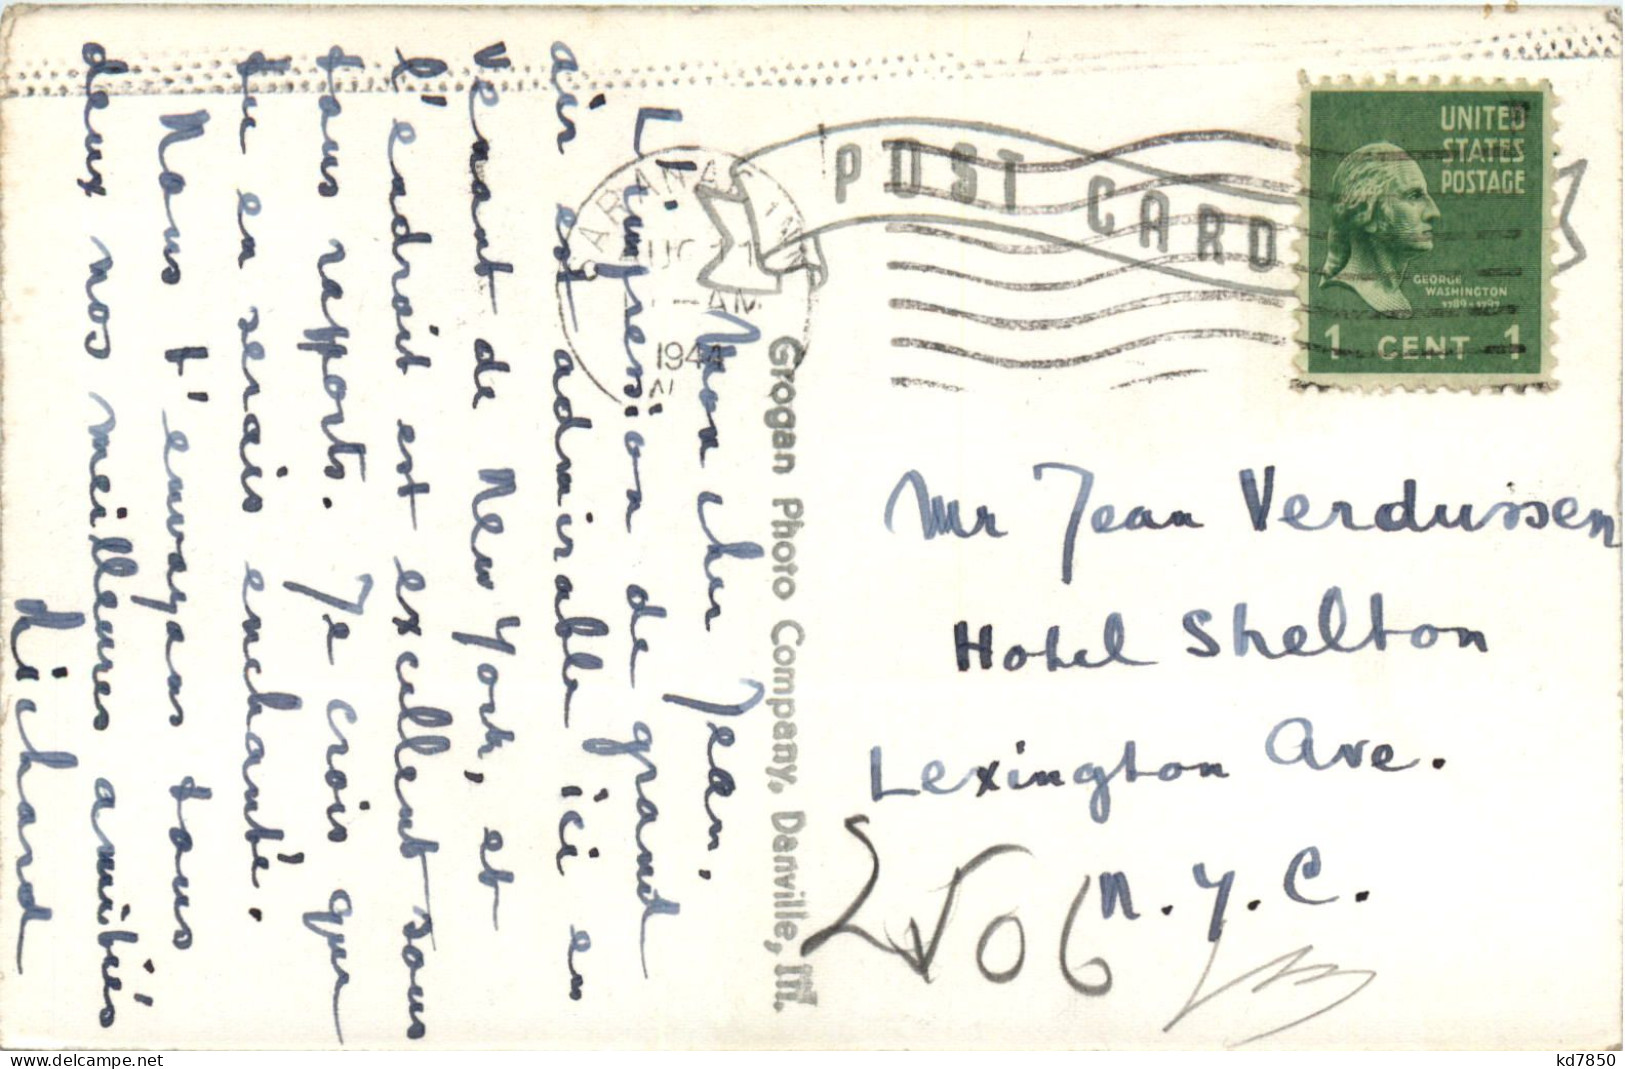 POST CARD
SARANAC INN
AUG 11
AM
1944
UNITED
STATES
POSTAGE
GEORGE
WASHINGTON
1789-1797
1 CENT 1
Mon cher Jean,
L'impression de grand
air est admirable ici en
venant de New York, et
l'endroit est excellent sous
tous rapports. Je crois que
tu en serais enchanté.
Nous t'envoyons tous
deux nos meilleures amitiés
Richard
Grogan Photo Company, Danville, Ill.
Mr Jean Verdussen
Hotel Shelton
Lexington Ave.
N.Y.C.
2506
www.delcampe.net
kd7850